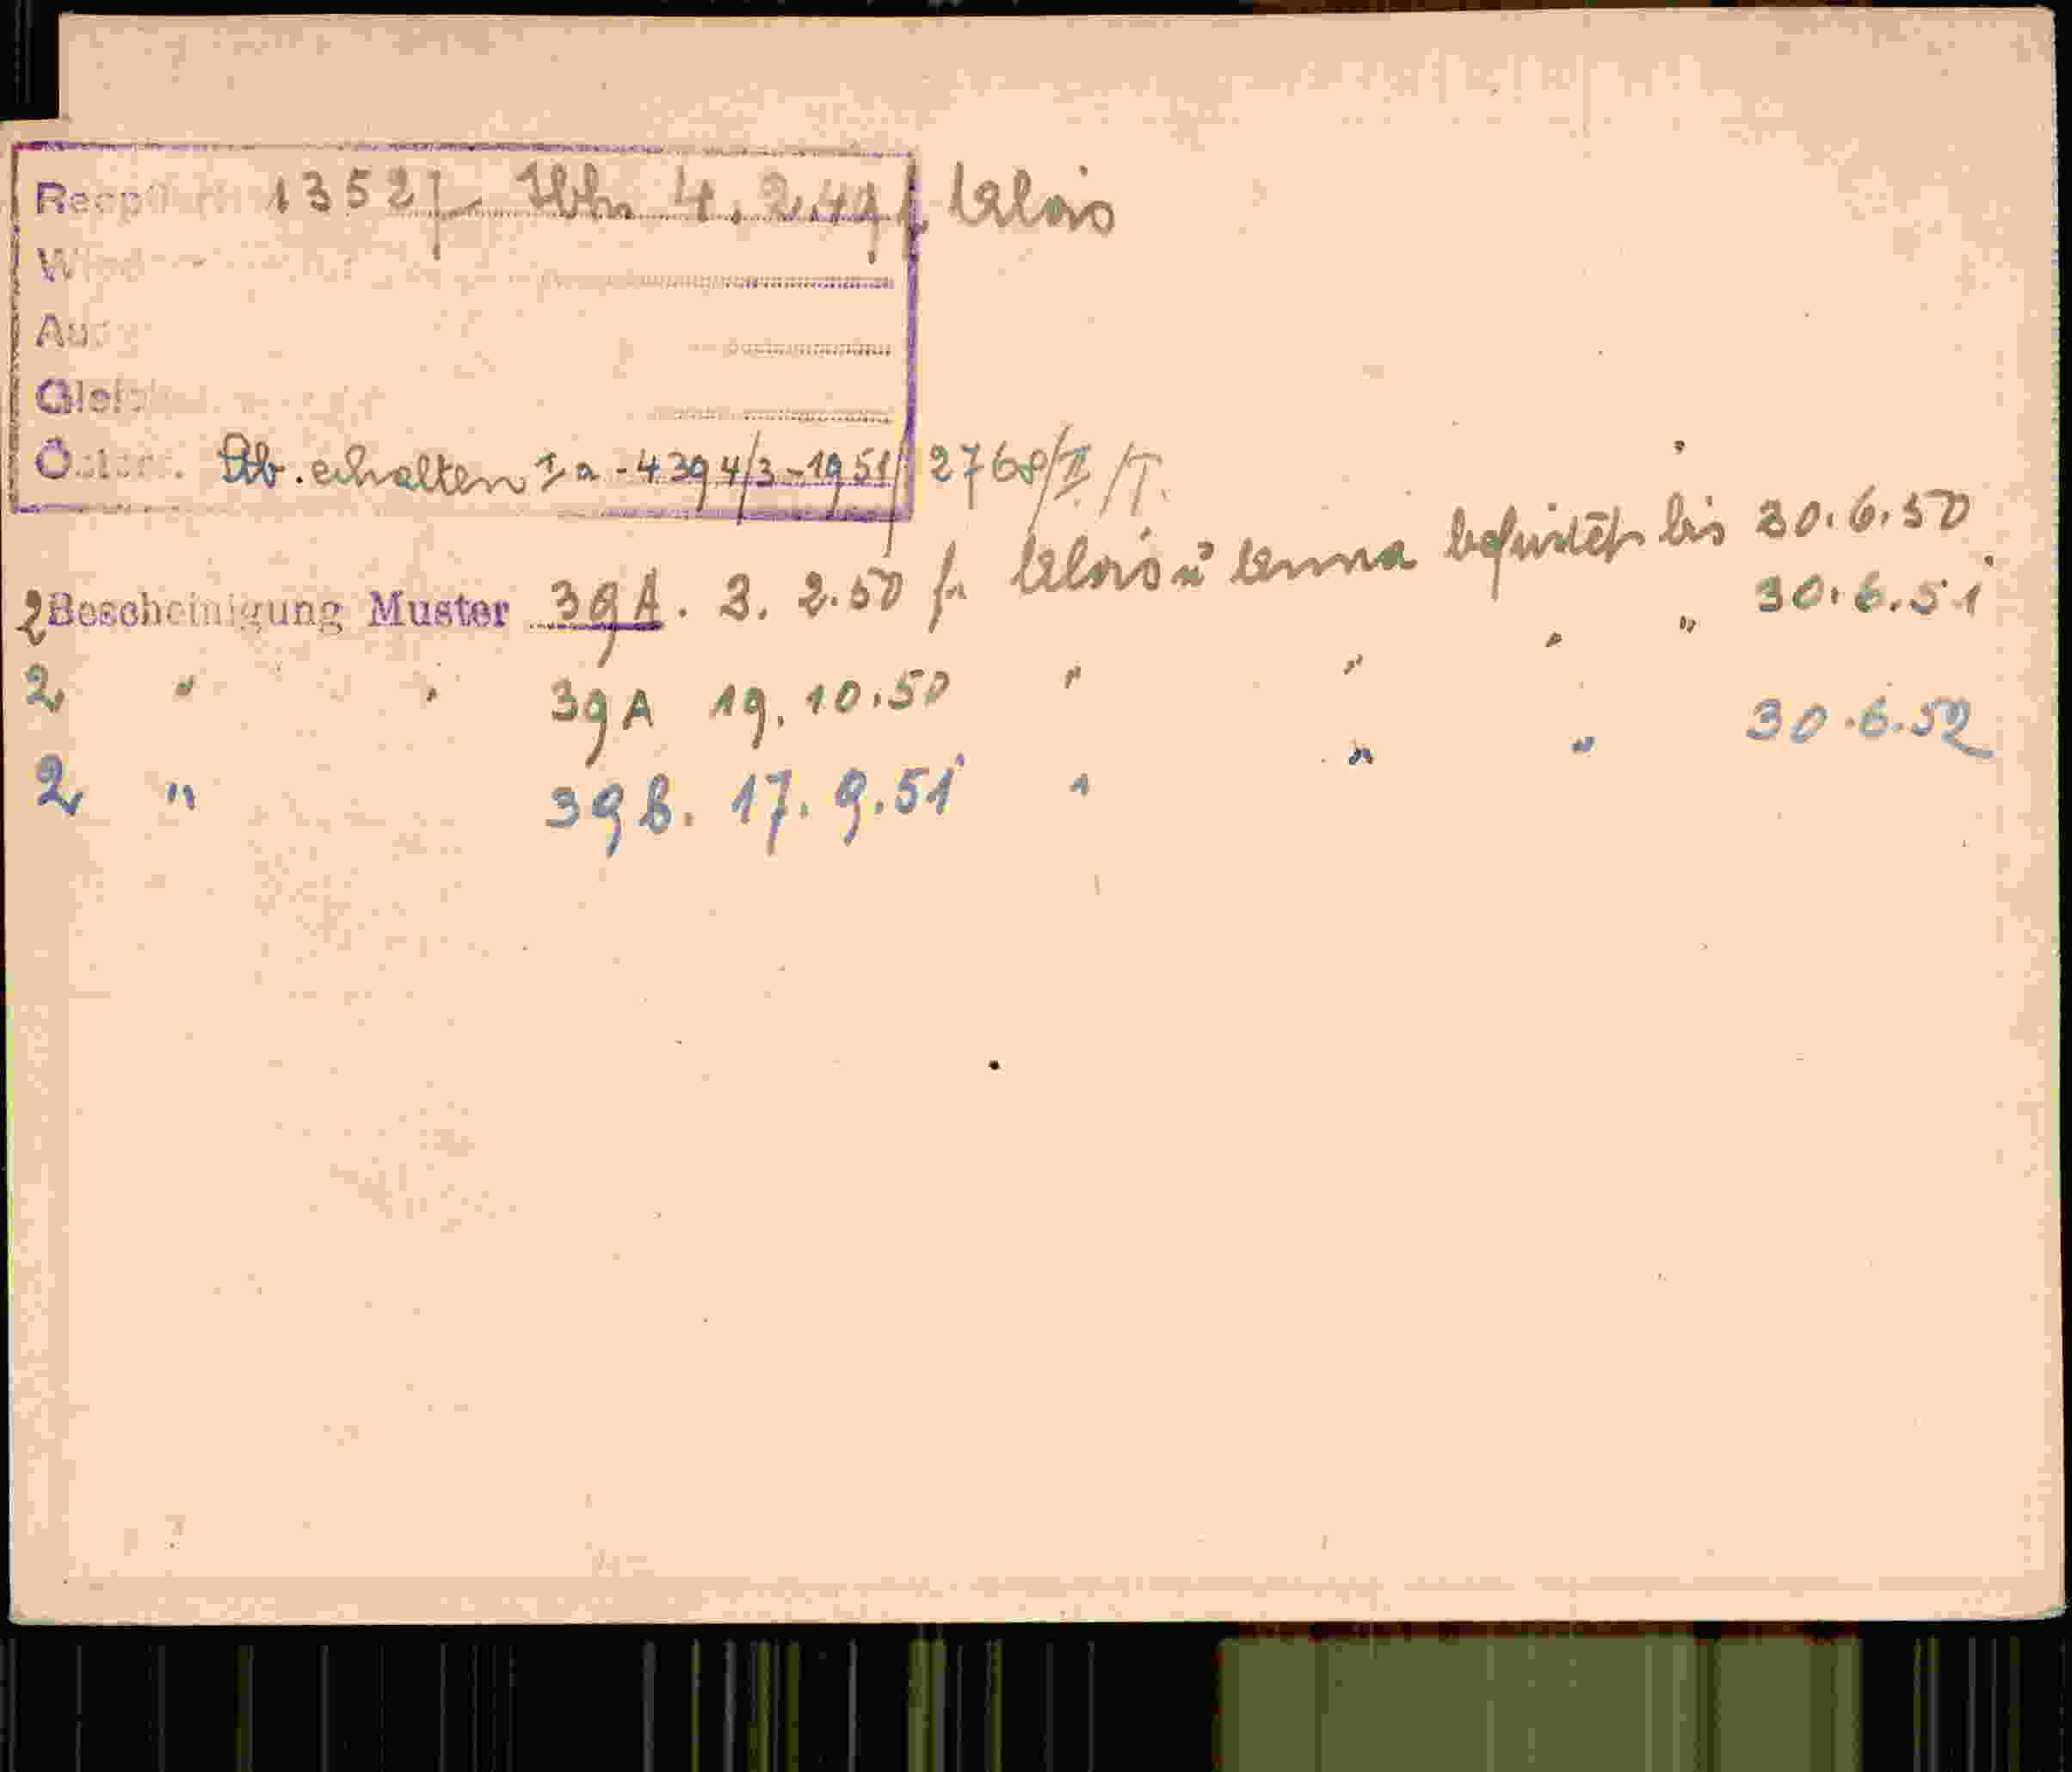 1352/- Wbh 4.2.49 f. Alois
Stb. erhalten Ia-4394/3-1951/ 2768/II/T.
2 Bescheinigung Muster 39A. 3. 2.50 f. Alois u Anna befristet bis 30.6.50
2 " " 39A 19.10.50 " " " " 30.6.51
2 " 39B. 17.9.51 " " " 30.6.52